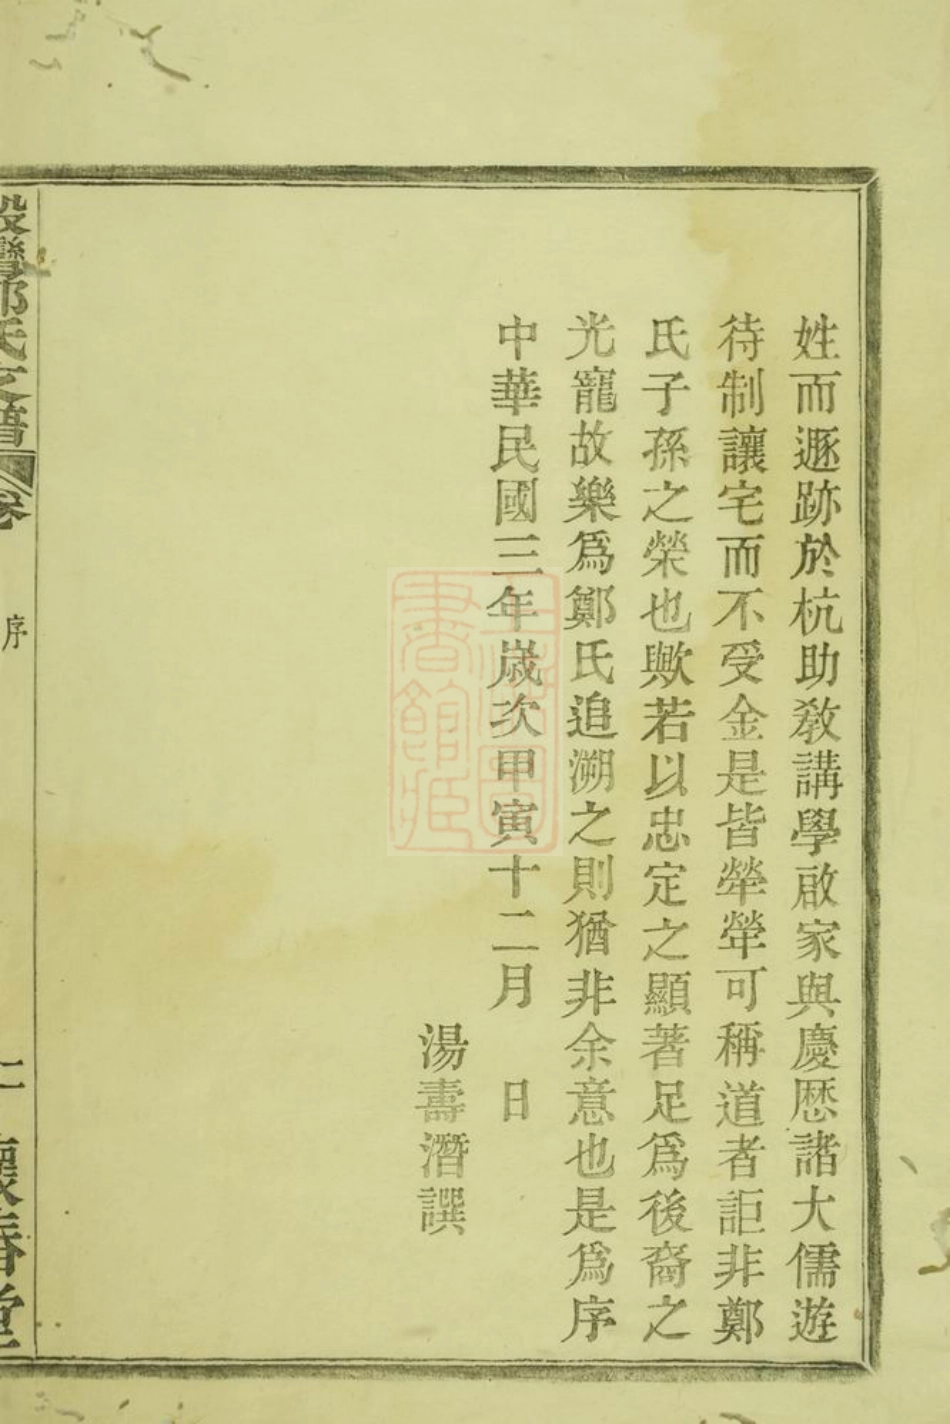 姓而遯跡於杭助敎講學啟家與慶歷諸大儒遊
待制讓宅而不受金是皆犖犖可稱道者詎非鄭
氏子孫之榮也歟若以忠定之顯著足爲後裔之
光寵故樂爲鄭氏追溯之則猶非余意也是爲序
中華民國三年歲次甲寅十二月　日
湯壽潛譔
鄭氏支譜 卷 序 二 懷春堂